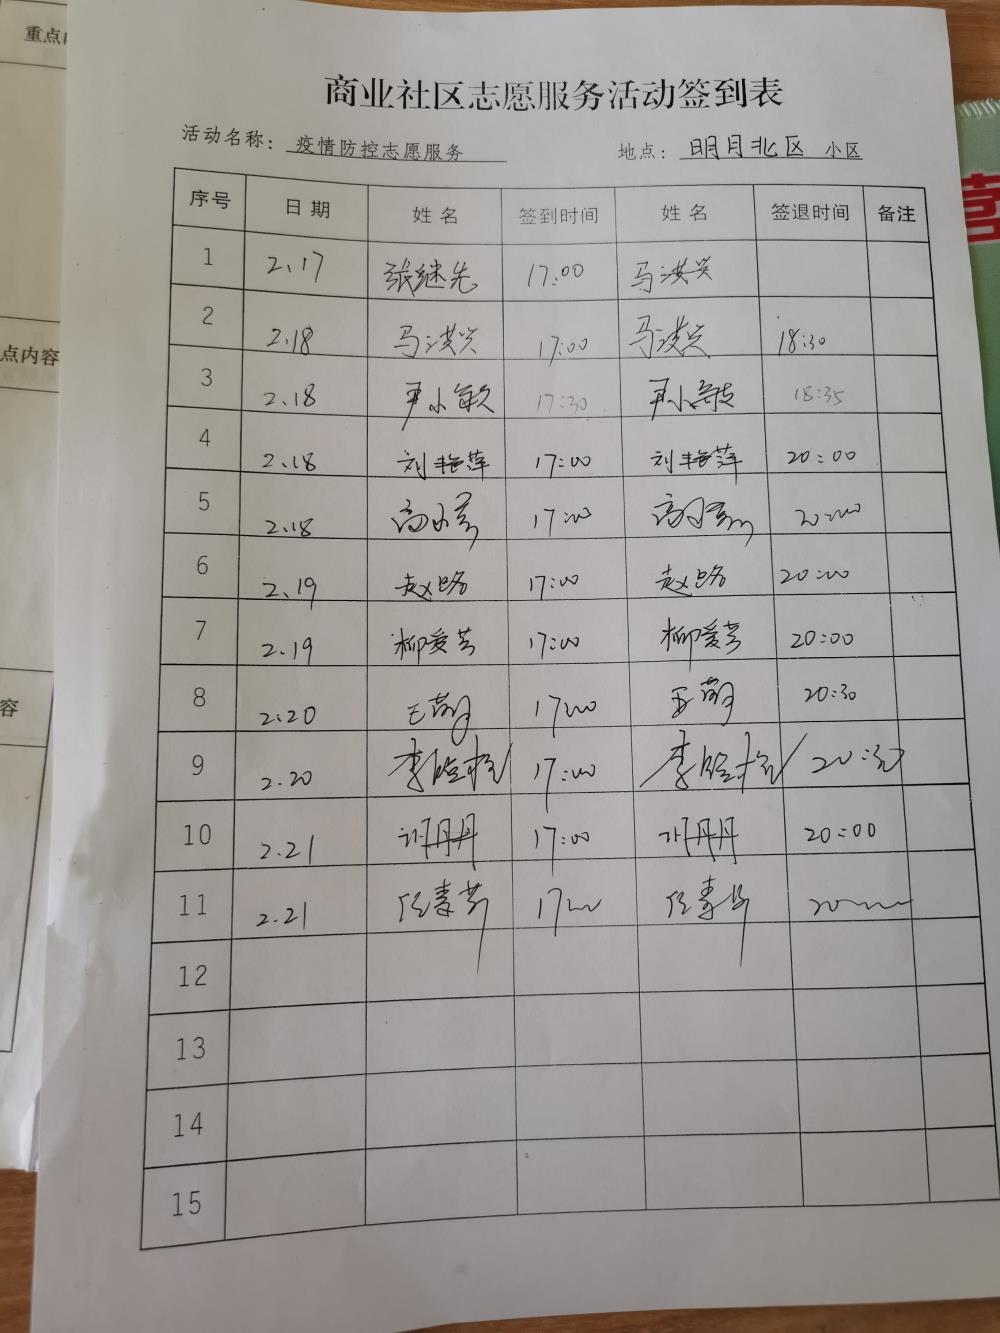 重点
点内容
容
商业社区志愿服务活动签到表
活动名称：疫情防控志愿服务 地点：明月北区 小区
序号 日期 姓名 签到时间 姓名 签退时间 备注
1 2.17 张继先 17:00 马洪兴
2 2.18 马洪兴 17:00 马洪兴 18:30
3 2.18 尹小敏 17:30 尹小敏 18:35
4 2.18 刘艳萍 17:00 刘艳萍 20:00
5 2.18 17:00 20:00
6 2.19 赵路 17:00 赵路 20:00
7 2.19 柳爱芳 17:00 柳爱芳 20:00
8 2.20 王萌 17:00 王萌 20:30
9 2.20 17:00 20:30
10 2.21 17:00 20:00
11 2.21 17:00 20:00
12
13
14
15